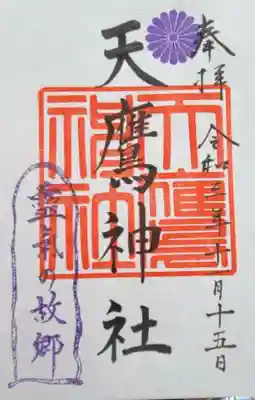 奉拝 令和三年十一月十五日
天鷹神社
天鷹
神社
気の故郷